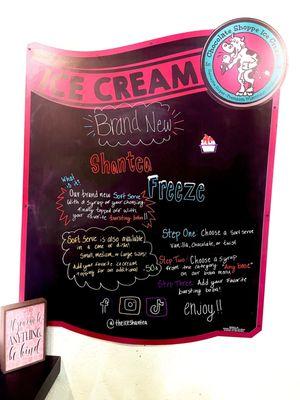 Chocolate Shoppe Ice Cream
ICE CREAM
Brand New
Shantea
Freeze
What is it?
Our brand new Soft Serve
with a syrup of your choosing
finally topped off with
your favorite bursting boba!!
Soft Serve is also available
in a cone or dish!
Small, medium, or Large sizes!
Add your favorite ice cream
topping for an additional .50¢
Step One: Choose a Soft serve
Vanilla, Chocolate, or twist
Step Two: Choose a syrup
from the category "Any base"
on our main menu
Step Three: Add your favorite
bursting boba!
enjoy!!
@theiceshantea
ANYTHING
be kind